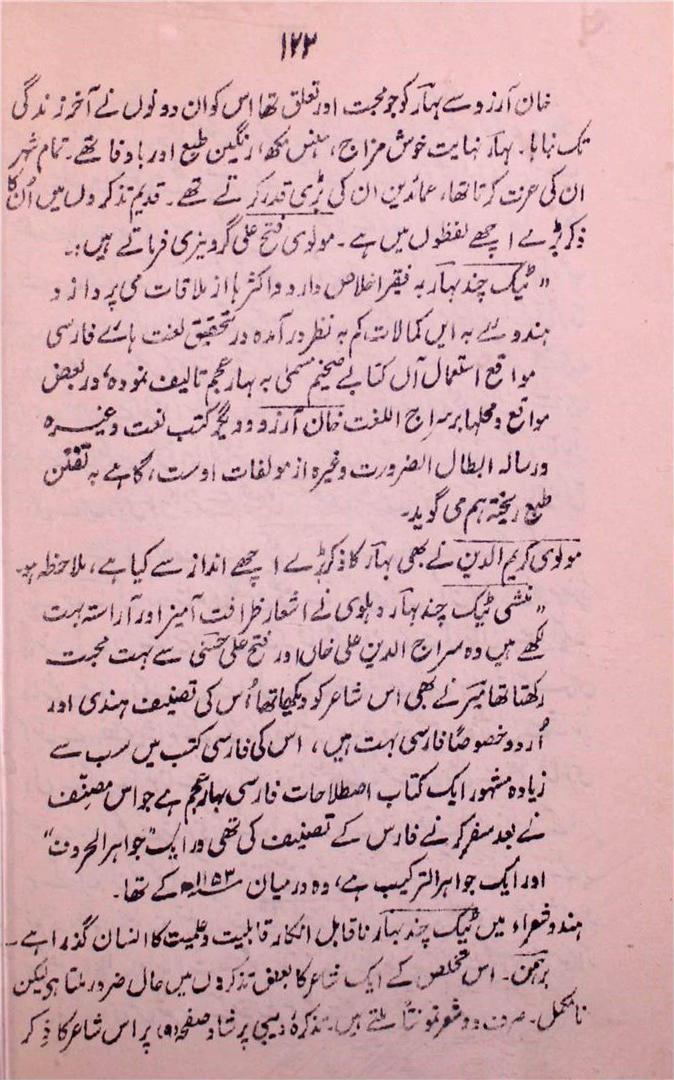 ۱۲۳
خان آرزو سے بہار کو جو محبت اور تعلق تھا اس کو ان دونوں نے آخر زندگی
تک نباہا۔ بہار نہایت خوش مزاج، ہنس مکھ، رنگین طبع اور باوفا تھے۔ تمام شہر
ان کی عزت کرتا تھا، عمائدین ان کی بڑی قدر کرتے تھے۔ قدیم تذکروں میں اُن کا
ذکر بڑے اچھے لفظوں میں ہے۔ مولوی فتح علی گردیزی فرماتے ہیں:۔
"ٹیک چند بہار بہ فقیر اخلاص دارد و اکثر ہا از ملاقات می پردازد و
ہندوئے بہ ایں کمالات کم بہ نظر در آمدہ در تحقیق لغت ہائے فارسی
مواقع استعمال آں کتابے ضخیم مسمّٰی بہ بہار عجم تالیف نمودہ، در بعض
مواقع و محلہا بر سراج اللغت خان آرزو و دیگر کتب لغت وغیرہ
و رسالہ ابطال الضرورت وغیرہ از مولفات اوست، گاہے بہ تفنن
طبع ریختہ ہم می گوید۔
مولوی کریم الدین نے بھی بہار کا ذکر بڑے اچھے انداز سے کیا ہے، ملاحظہ ہو۔
"منشی ٹیک چند بہار دہلوی نے اشعار ظرافت آمیز اور آراستہ بہت
لکھے ہیں وہ سراج الدین علی خاں اور فتح علی حسنی سے بہت محبت
رکھتا تھا میر نے بھی اس شاعر کو دیکھا تھا اُس کی تصنیف ہندی اور
اُردو خصوصاً فارسی بہت ہیں، اس کی فارسی کتب میں سب سے
زیادہ مشہور ایک کتاب اصطلاحات فارسی بہار عجم ہے جو اس مصنّف
نے بعد سفر کرنے فارس کے تصنیف کی تھی اور ایک "جواہر الحروف"
اور ایک جواہر الترکیب ہے، وہ درمیان ۱۱۵۳ھ کے تھا۔
ہندو شعراء میں ٹیک چند بہار ناقابل انکار قابلیت و علمیت کا انسان گذرا ہے۔
برہمن۔ اس تخلص کے ایک شاعر کا بعض تذکروں میں حال ضرور ملتا ہی لیکن
نامکمل۔ صرف دو شعر نمونتاً ملتے ہیں۔ تذکرۂ دیبی پرشاد صفحہ (۹) پر اس شاعر کا ذکر